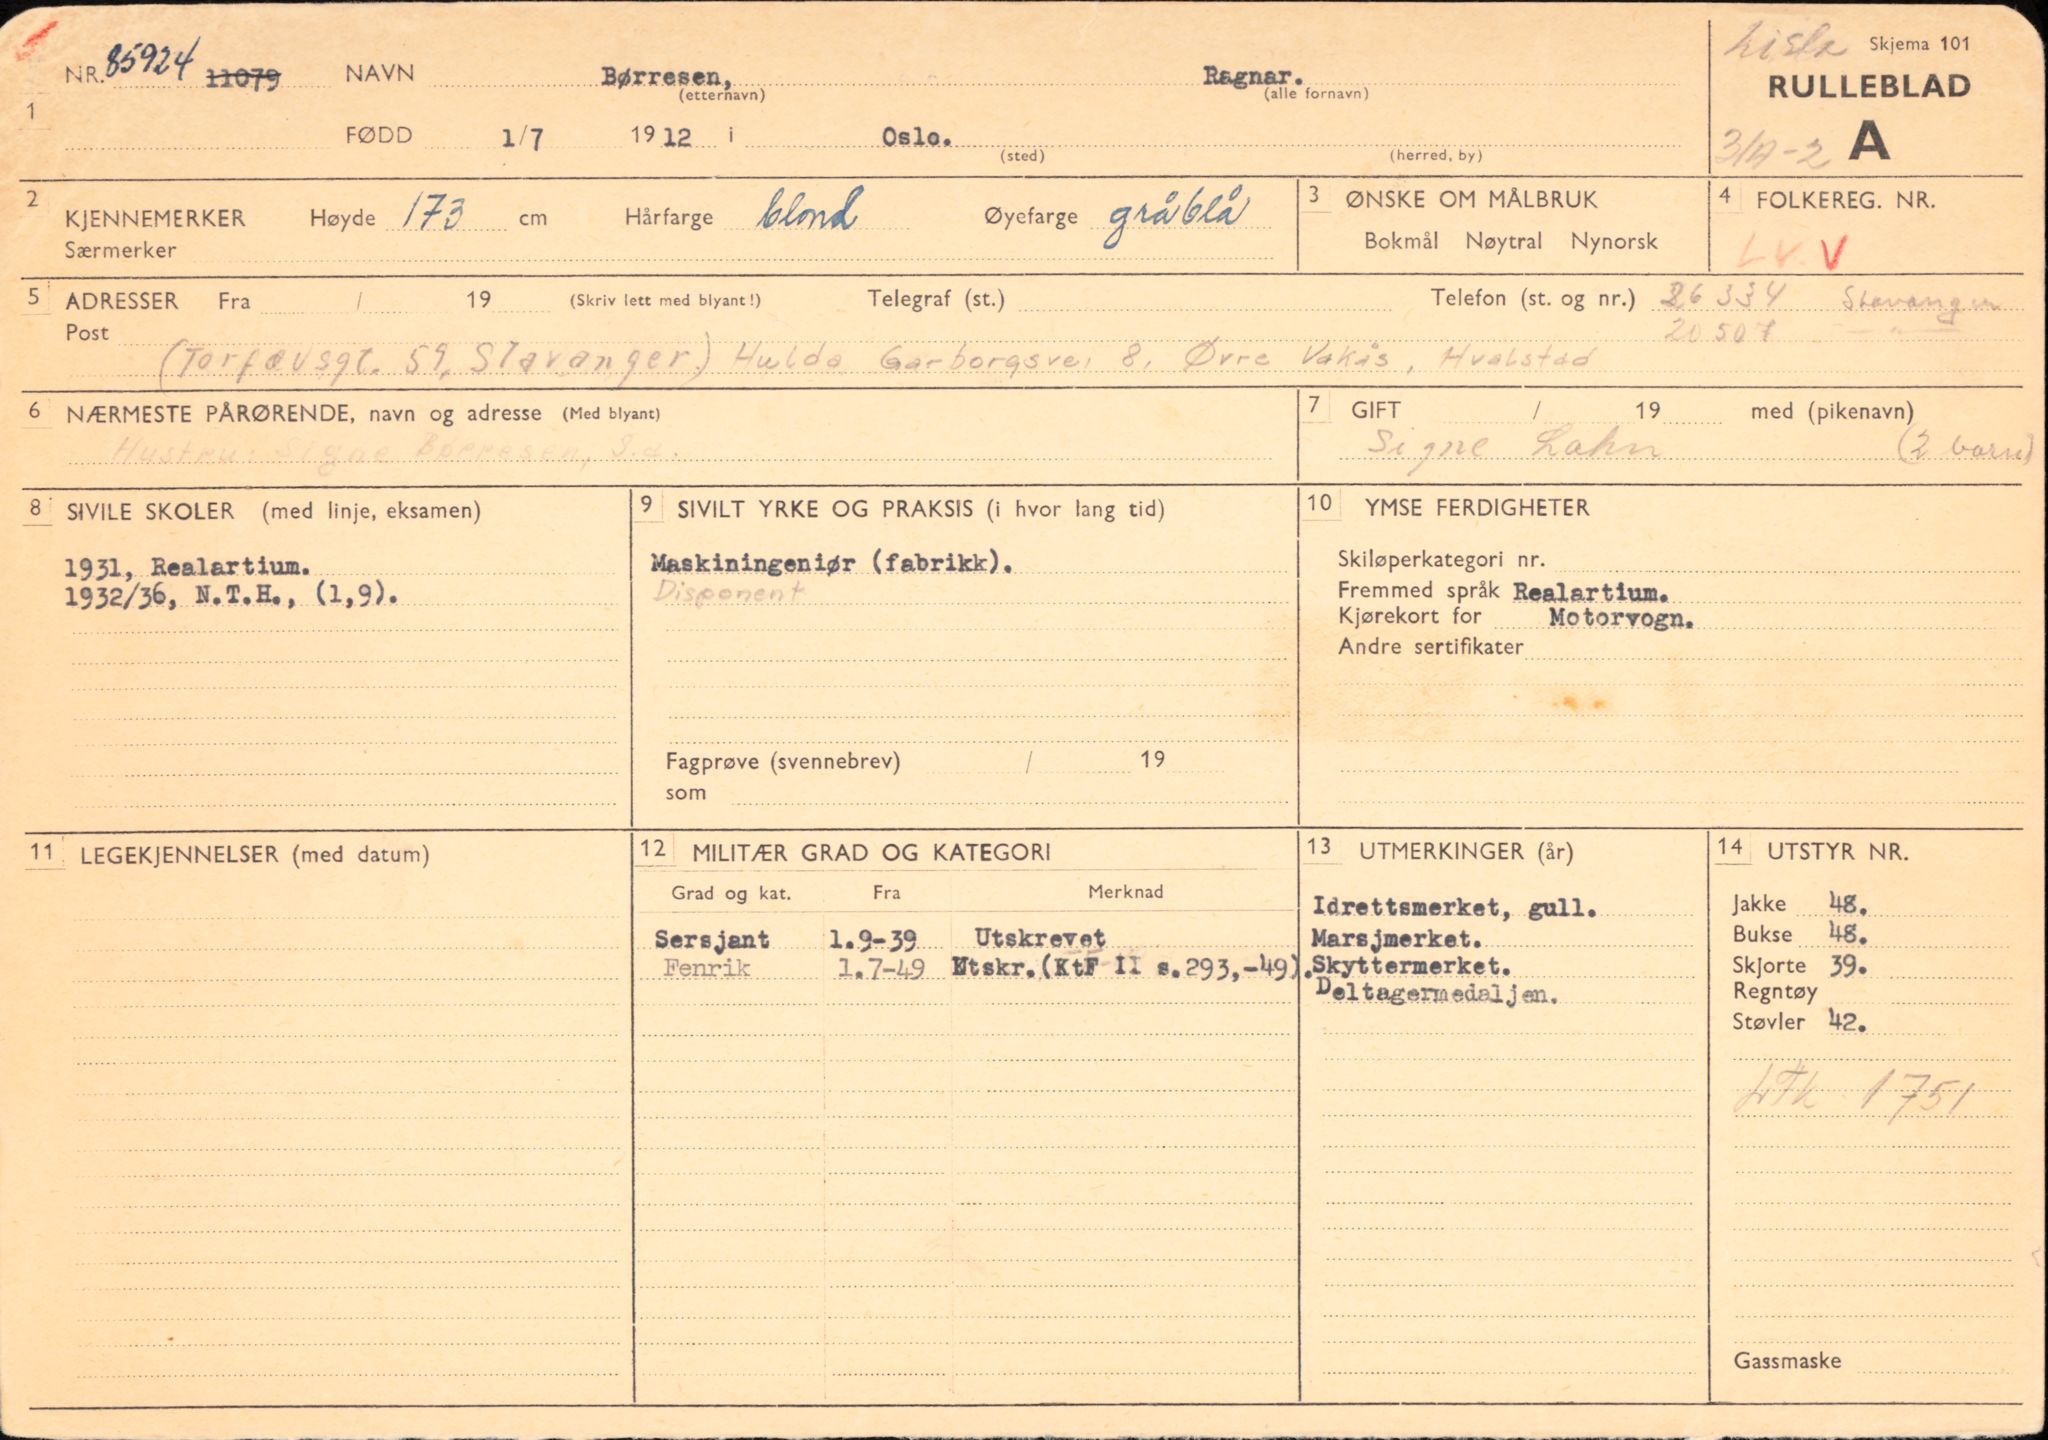 NR. 85924 11079 NAVN Børresen, Ragnar.
(etternavn) (alle fornavn)
Skjema 101
RULLEBLAD
3/A-2 A
1
FØDD 1/7 1912 i Oslo.
(sted) (herred, by)
2 KJENNEMERKER Høyde 173 cm Hårfarge blond Øyefarge gråblå
Særmerker
3 ØNSKE OM MÅLBRUK
Bokmål Nøytral Nynorsk
4 FOLKEREG. NR.
L V. V
5 ADRESSER Fra / 19 (Skriv lett med blyant!) Telegraf (st.) Telefon (st. og nr.) 26334 Stavanger
Post 20507 — " —
(Torfæusgt. 59, Stavanger.) Hulda Garborgsvei 8, Øvre Vakås, Hvalstad
6 NÆRMESTE PÅRØRENDE, navn og adresse (Med blyant)
Hustru: Signe Børresen, s.a.
7 GIFT / 19 med (pikenavn)
Signe Lahn (2 barn)
8 SIVILE SKOLER (med linje, eksamen)
1931, Realartium.
1932/36, N.T.H., (1,9).
9 SIVILT YRKE OG PRAKSIS (i hvor lang tid)
Maskiningeniør (fabrikk).
Disponent
Fagprøve (svennebrev) / 19
som
10 YMSE FERDIGHETER
Skiløperkategori nr.
Fremmed språk Realartium.
Kjørekort for Motorvogn.
Andre sertifikater
11 LEGEKJENNELSER (med datum)
12 MILITÆR GRAD OG KATEGORI
Grad og kat. Fra Merknad
Sersjant 1.9-39 Utskrevet
Fenrik 1.7-49 Utskr.(KtF II s.293,-49).
13 UTMERKINGER (år)
Idrettsmerket, gull.
Marsjmerket.
Skyttermerket.
Deltagermedaljen.
14 UTSTYR NR.
Jakke 48.
Bukse 48.
Skjorte 39.
Regntøy
Støvler 42.
1751
Gassmaske